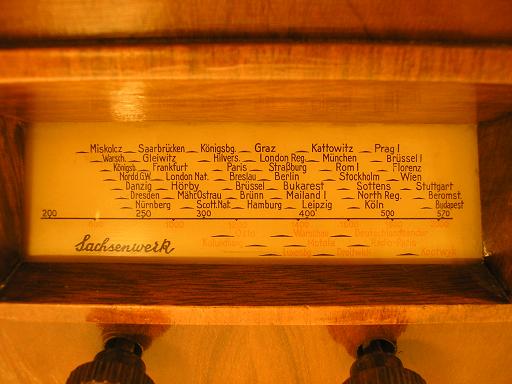 Miskolcz Saarbrücken Königsbg. Graz Kattowitz Prag I
Warsch. Gleiwitz Hilvers. London Reg. München Brüssel I
Königsb. Frankfurt Paris Straßburg Rom I Florenz
Nordd.G.W. London Nat. Breslau Berlin Stockholm Wien
Danzig Hörby Brüssel Bukarest Sottens Stuttgart
Dresden Mähr.Ostrau Brünn Mailand I North Reg. Beromst.
Nürnberg Scott.Nat. Hamburg Leipzig Köln Budapest
200 250 300 400 500 570
1000
Oslo Warschau
Sachsenwerk Kalundborg Motala Radio-Paris
Droitwich Kootwijk